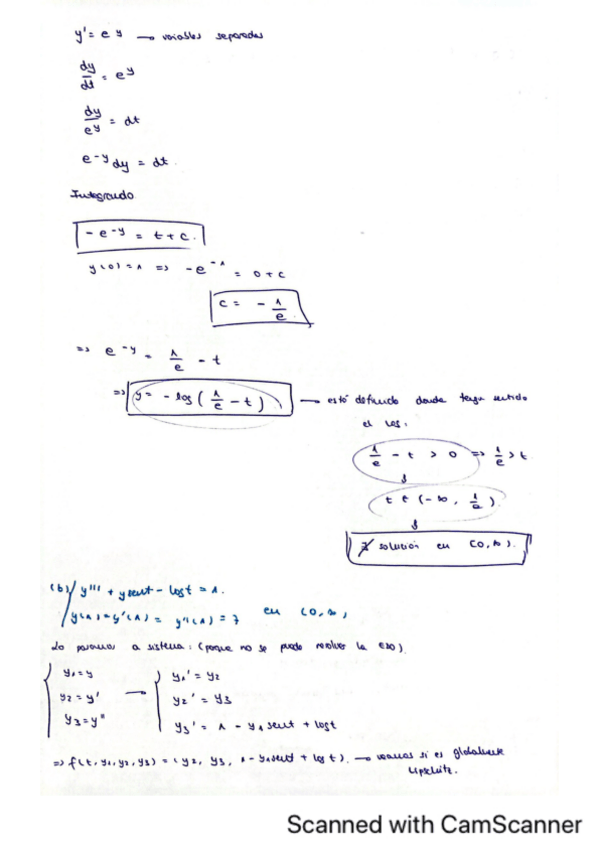 y' = e^y → variables separadas
dy/dt = e^y
dy/e^y = dt
e^-y dy = dt.
Integrando
-e^-y = t + c.
y(0) = 1 => -e^-1 = 0 + c
c = - 1/e
=> e^-y = 1/e - t
=> y = - log(1/e - t) → está definido donde tenga sentido
el log:
1/e - t > 0 => 1/e > t
t ∈ (-∞, 1/e).
∄ solución en (0,∞).
(b) y''' + y sent - log t = 1.
y(1) = y'(1) = y''(1) = 7 en (0,∞)
Lo paramos a sistema: (porque no se puede resolver la EDO)
y1 = y y1' = y2
y2 = y' → y2' = y3
y3 = y'' y3' = 1 - y1 sent + log t
=> f(t, y1, y2, y3) = (y2, y3, 1 - y1 sent + log t). → veamos si es globalmente
Lipschitz.
Scanned with CamScanner